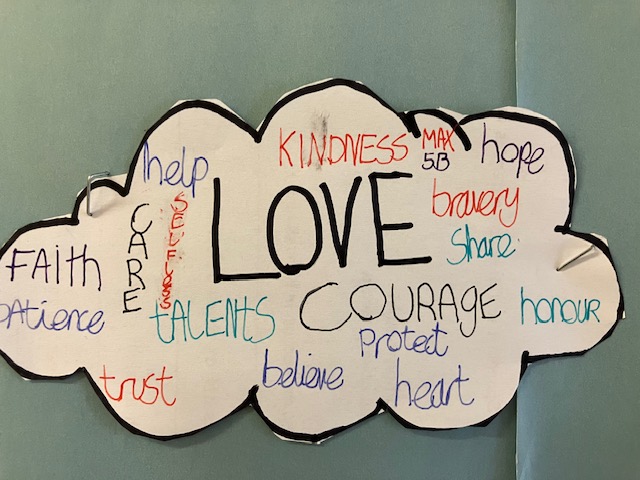 KINDNESS
MAX
5B
hope
help
LOVE
bravery
share
CARE
SELFLESS
FAith
patience
tALENtS
COURAGE
honour
Protect
trust
believe
heart